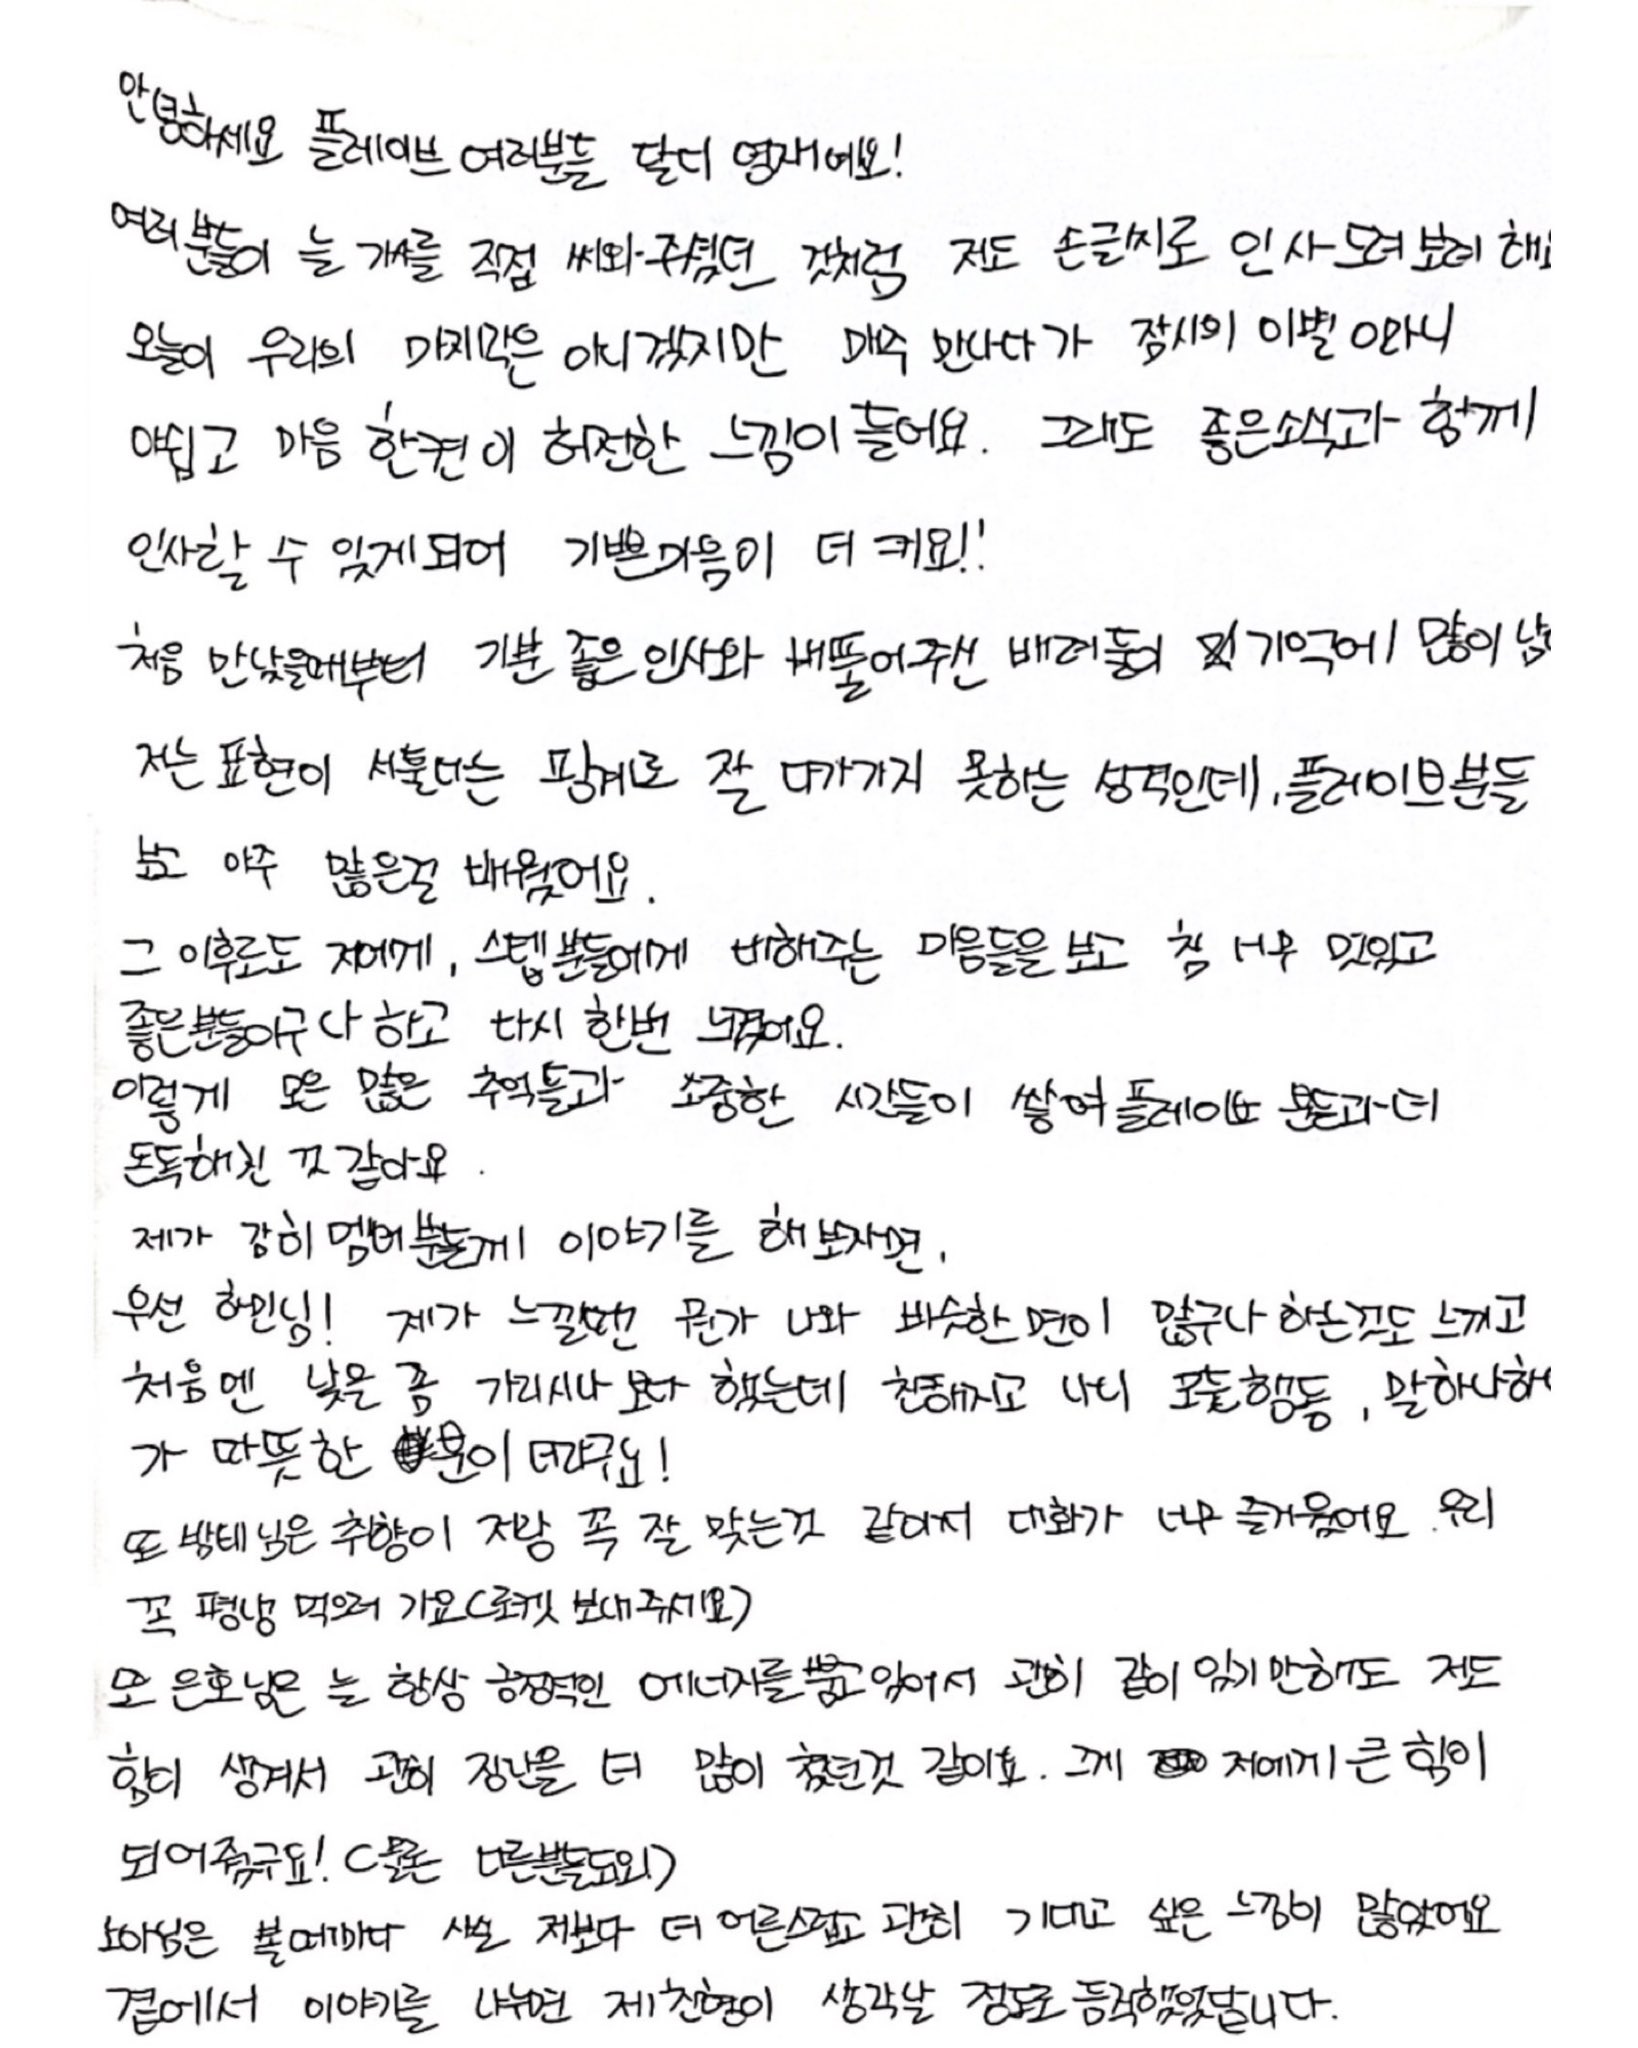 안녕하세요 플레이브 여러분들 달디 영재에요!
여러분들이 늘 가사를 직접 써와주셨던 것처럼 저도 손글씨로 인사드려보려 해요
오늘이 우리의 마지막은 아니겠지만 매주 만나다가 잠시의 이별이라니
아쉽고 마음 한켠이 허전한 느낌이 들어요. 그래도 좋은소식과 함께
인사할 수 있게되어 기쁜마음이 더 커요!!
처음 만났을때부터 기분 좋은 인사와 베풀어주신 배려들이 기억에 많이 남
저는 표현이 서툴다는 핑계로 잘 다가가지 못하는 성격인데, 플레이브분들
보고 아주 많은걸 배웠어요.
그 이후로도 저에게, 스텝분들에게 대해주는 마음들을 보고 참 너무 멋있고
좋은분들이구나 하고 다시 한번 느꼈어요.
이렇게 모은 많은 추억들과 소중한 시간들이 쌓여 플레이브 분들과 더
돈독해진 것 같아요.
제가 감히 멤버분들께 이야기를 해보자면,
우선 하민님! 제가 느낄땐 뭔가 나와 비슷한 면이 많구나 하는것도 느끼고
처음엔 낯을 좀 가리시나 보다 했는데 친해지고 나니 모든행동, 말하나하나
가 따뜻한 분이더라구요!
또 밤비님은 취향이 저랑 꼭 잘 맞는것 같아서 대화가 너무 즐거웠어요. 우리
꼭 평냉 먹으러 가요(로켓 보내주세요)
또 은호님은 늘 항상 긍정적인 에너지를 뿜고있어서 괜히 같이 있기만해도 저도
힘이 생겨서 괜히 장난을 더 많이 쳤던것 같아요. 그게 저에게 큰 힘이
되어줬구요! (물론 다른분들도요)
노아님은 볼때마다 사실 저보다 더 어른스럽고 괜히 기대고 싶은 느낌이 많았어요
곁에서 이야기를 나누면 제 친형이 생각날 정도로 듬직했었답니다.